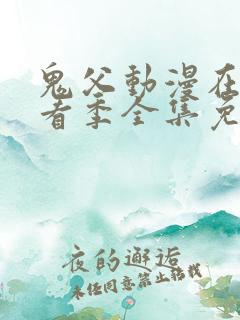 鬼父動漫在
看季全集免
夜的邂逅
未经同意禁止转载